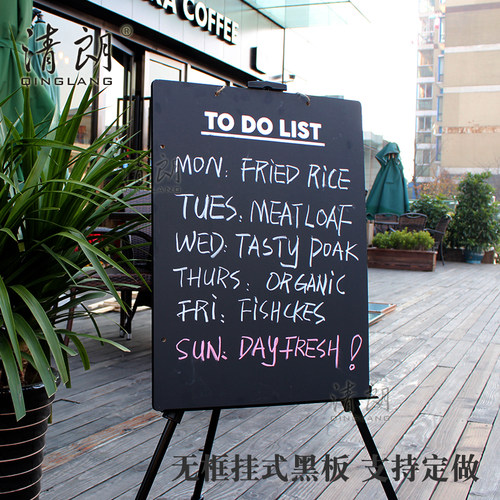 COFFEE
清朗®
QINGLANG
TO DO LIST
MON: FRIED RICE
TUES. MEATLOAF
WED: TASTY DOAK
THURS: ORGANIC
FRI: FISHCKES
SUN: DAY FRESH!
清朗
无框挂式黑板 支持定做